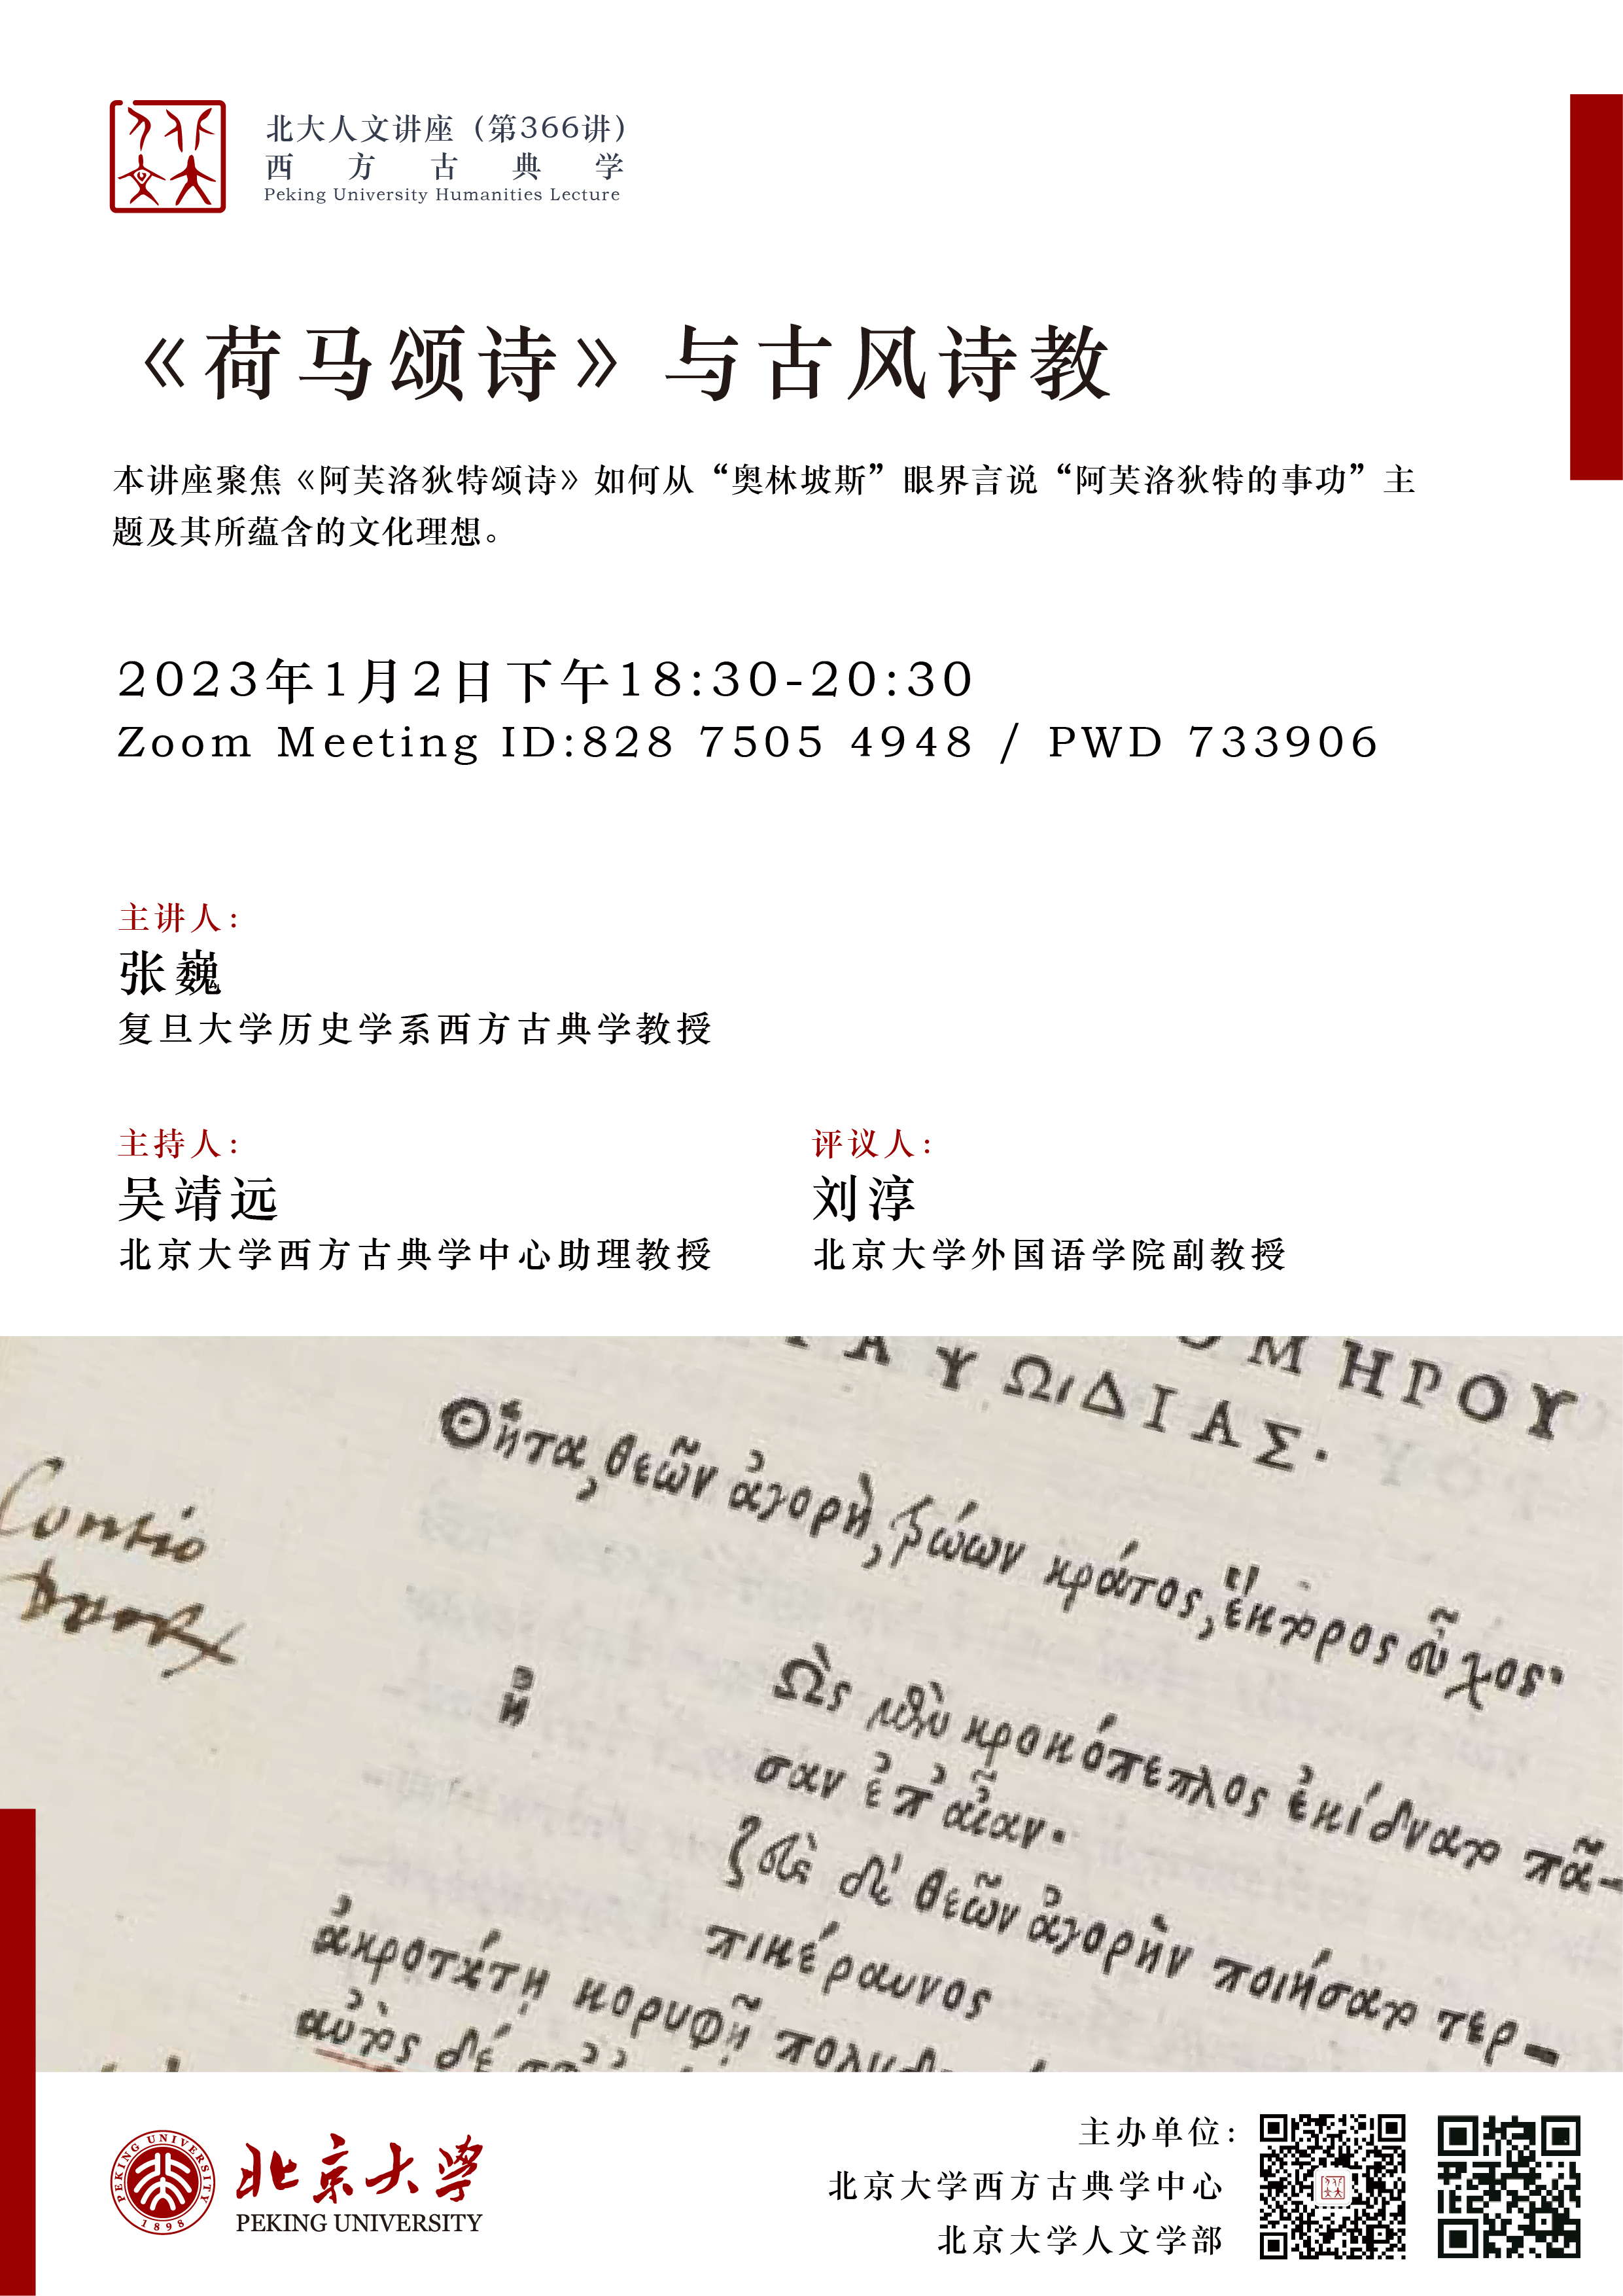 北大人文讲座（第366讲）
西方古典学
Peking University Humanities Lecture
《荷马颂诗》与古风诗教
本讲座聚焦《阿芙洛狄特颂诗》如何从“奥林坡斯”眼界言说“阿芙洛狄特的事功”主
题及其所蕴含的文化理想。
2023年1月2日下午18:30-20:30
Zoom Meeting ID:828 7505 4948 / PWD 733906
主讲人：
张巍
复旦大学历史学系西方古典学教授
主持人：
吴靖远
北京大学西方古典学中心助理教授
评议人：
刘淳
北京大学外国语学院副教授
ΟΜΗΡΟΥ
ΡΑΨΩΙΔΙΑΣ·
Θῆτα, θεῶν ἀγορὴ, τρώων κράτος, ἕκτορος εὖχος·
Ὣς μὲν κροκόπεπλος ἐκίδνατο πᾶ-
σαν ἐπ' αἶαν·
ζεὺς δὲ θεῶν ἀγορὴν ποιήσατο τερ-
πικέραυνος
ἀκροτάτη κορυφῇ
αὐτὸς δέ
北京大学
PEKING UNIVERSITY
PEKING UNIVERSITY
1898
主办单位：
北京大学西方古典学中心
北京大学人文学部